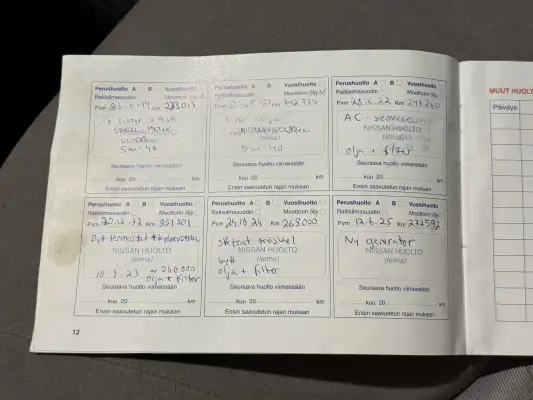 Perushuolto A B Vuosihuolto
Raitisilmasuodin Moottorin öljy
Pvm 25.6-19 Km 233013
+ filter
NISSAN HUOLTO
5w-40
Seuraava huolto viimeistään
kuu 20 km
Ensin saavutetun rajan mukaan
Perushuolto A B Vuosihuolto
Raitisilmasuodin Moottorin öljy
Pvm 21 Km 242775
NISSAN HUOLTO
5w-40
Seuraava huolto viimeistään
kuu 20 km
Ensin saavutetun rajan mukaan
Perushuolto A B Vuosihuolto
Raitisilmasuodin Moottorin öljy
Pvm 28.6.22 Km 247260
AC-service
NISSAN HUOLTO
(leima)
olja + filter
Seuraava huolto viimeistään
kuu 20 km
Ensin saavutetun rajan mukaan
Perushuolto A B Vuosihuolto
Raitisilmasuodin Moottorin öljy
Pvm 20.12.22 Km 251301
Bytt termostat
NISSAN HUOLTO
(leima)
10.9.23 ≈ 260000
olja + filter
Seuraava huolto viimeistään
kuu 20 km
Ensin saavutetun rajan mukaan
Perushuolto A B Vuosihuolto
Raitisilmasuodin Moottorin öljy
Pvm 24.10.24 Km 268000
NISSAN HUOLTO
bytt (leima)
olja + filter
Seuraava huolto viimeistään
kuu 20 km
Ensin saavutetun rajan mukaan
Perushuolto A B Vuosihuolto
Raitisilmasuodin Moottorin öljy
Pvm 12.6.25 Km 272592
Ny generator
NISSAN HUOLTO
(leima)
Seuraava huolto viimeistään
kuu 20 km
Ensin saavutetun rajan mukaan
12
MUUT HUOLT
Päiväys